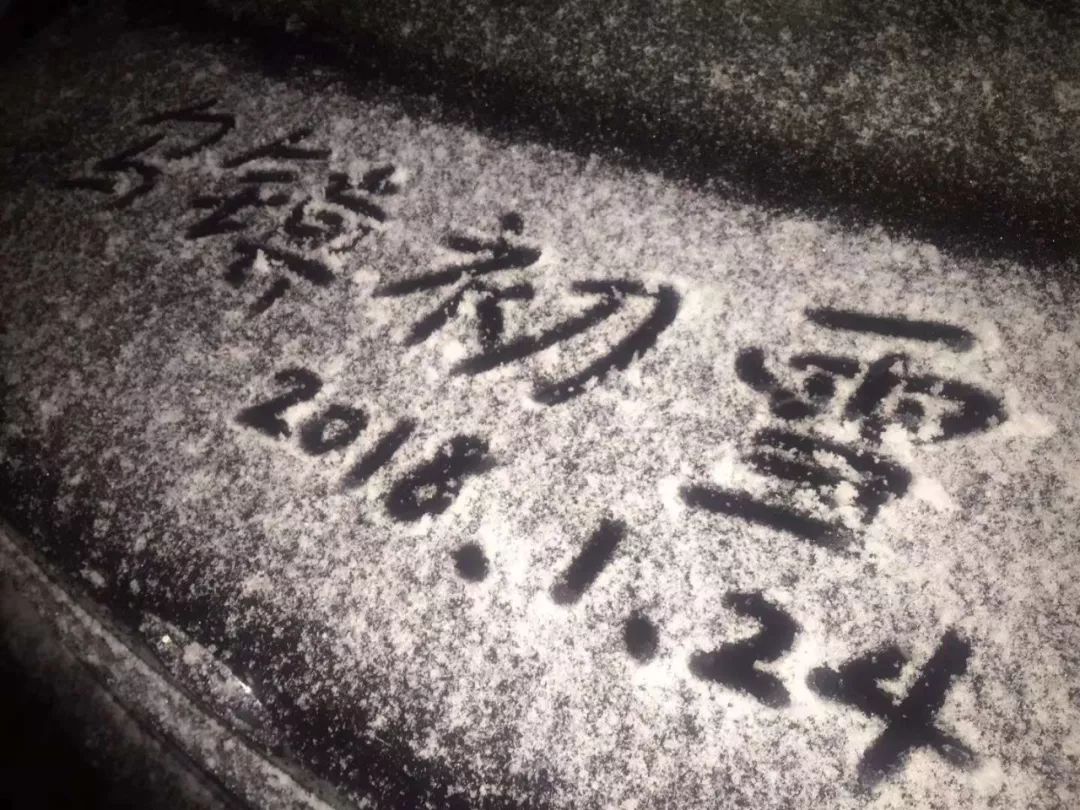 初雪
2018.1.24